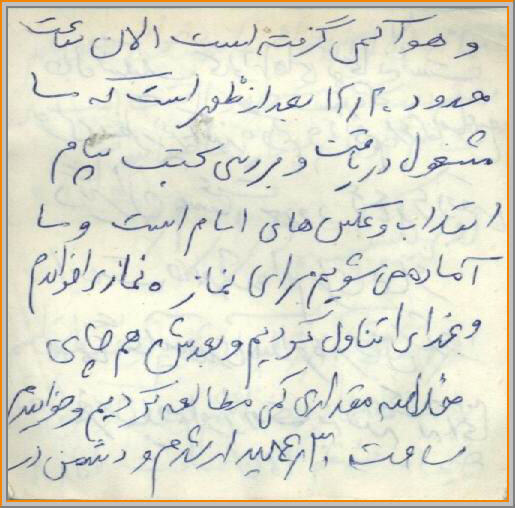 و هوا کمی گرفته است الان ساعت
حدود ۱۲/۲۰ بعد از ظهر است که ما
مشغول دریافت و بررسی کتب پیام
انقلاب و عکس های امام است و ما
آماده می شویم برای نماز ه نماز را خواندیم
و غذا را تناول کردیم و بعدش هم چای
خلاصه مقداری کمی مطالعه کردیم و خوابیدیم
ساعت بیدار شدم و دشمن در